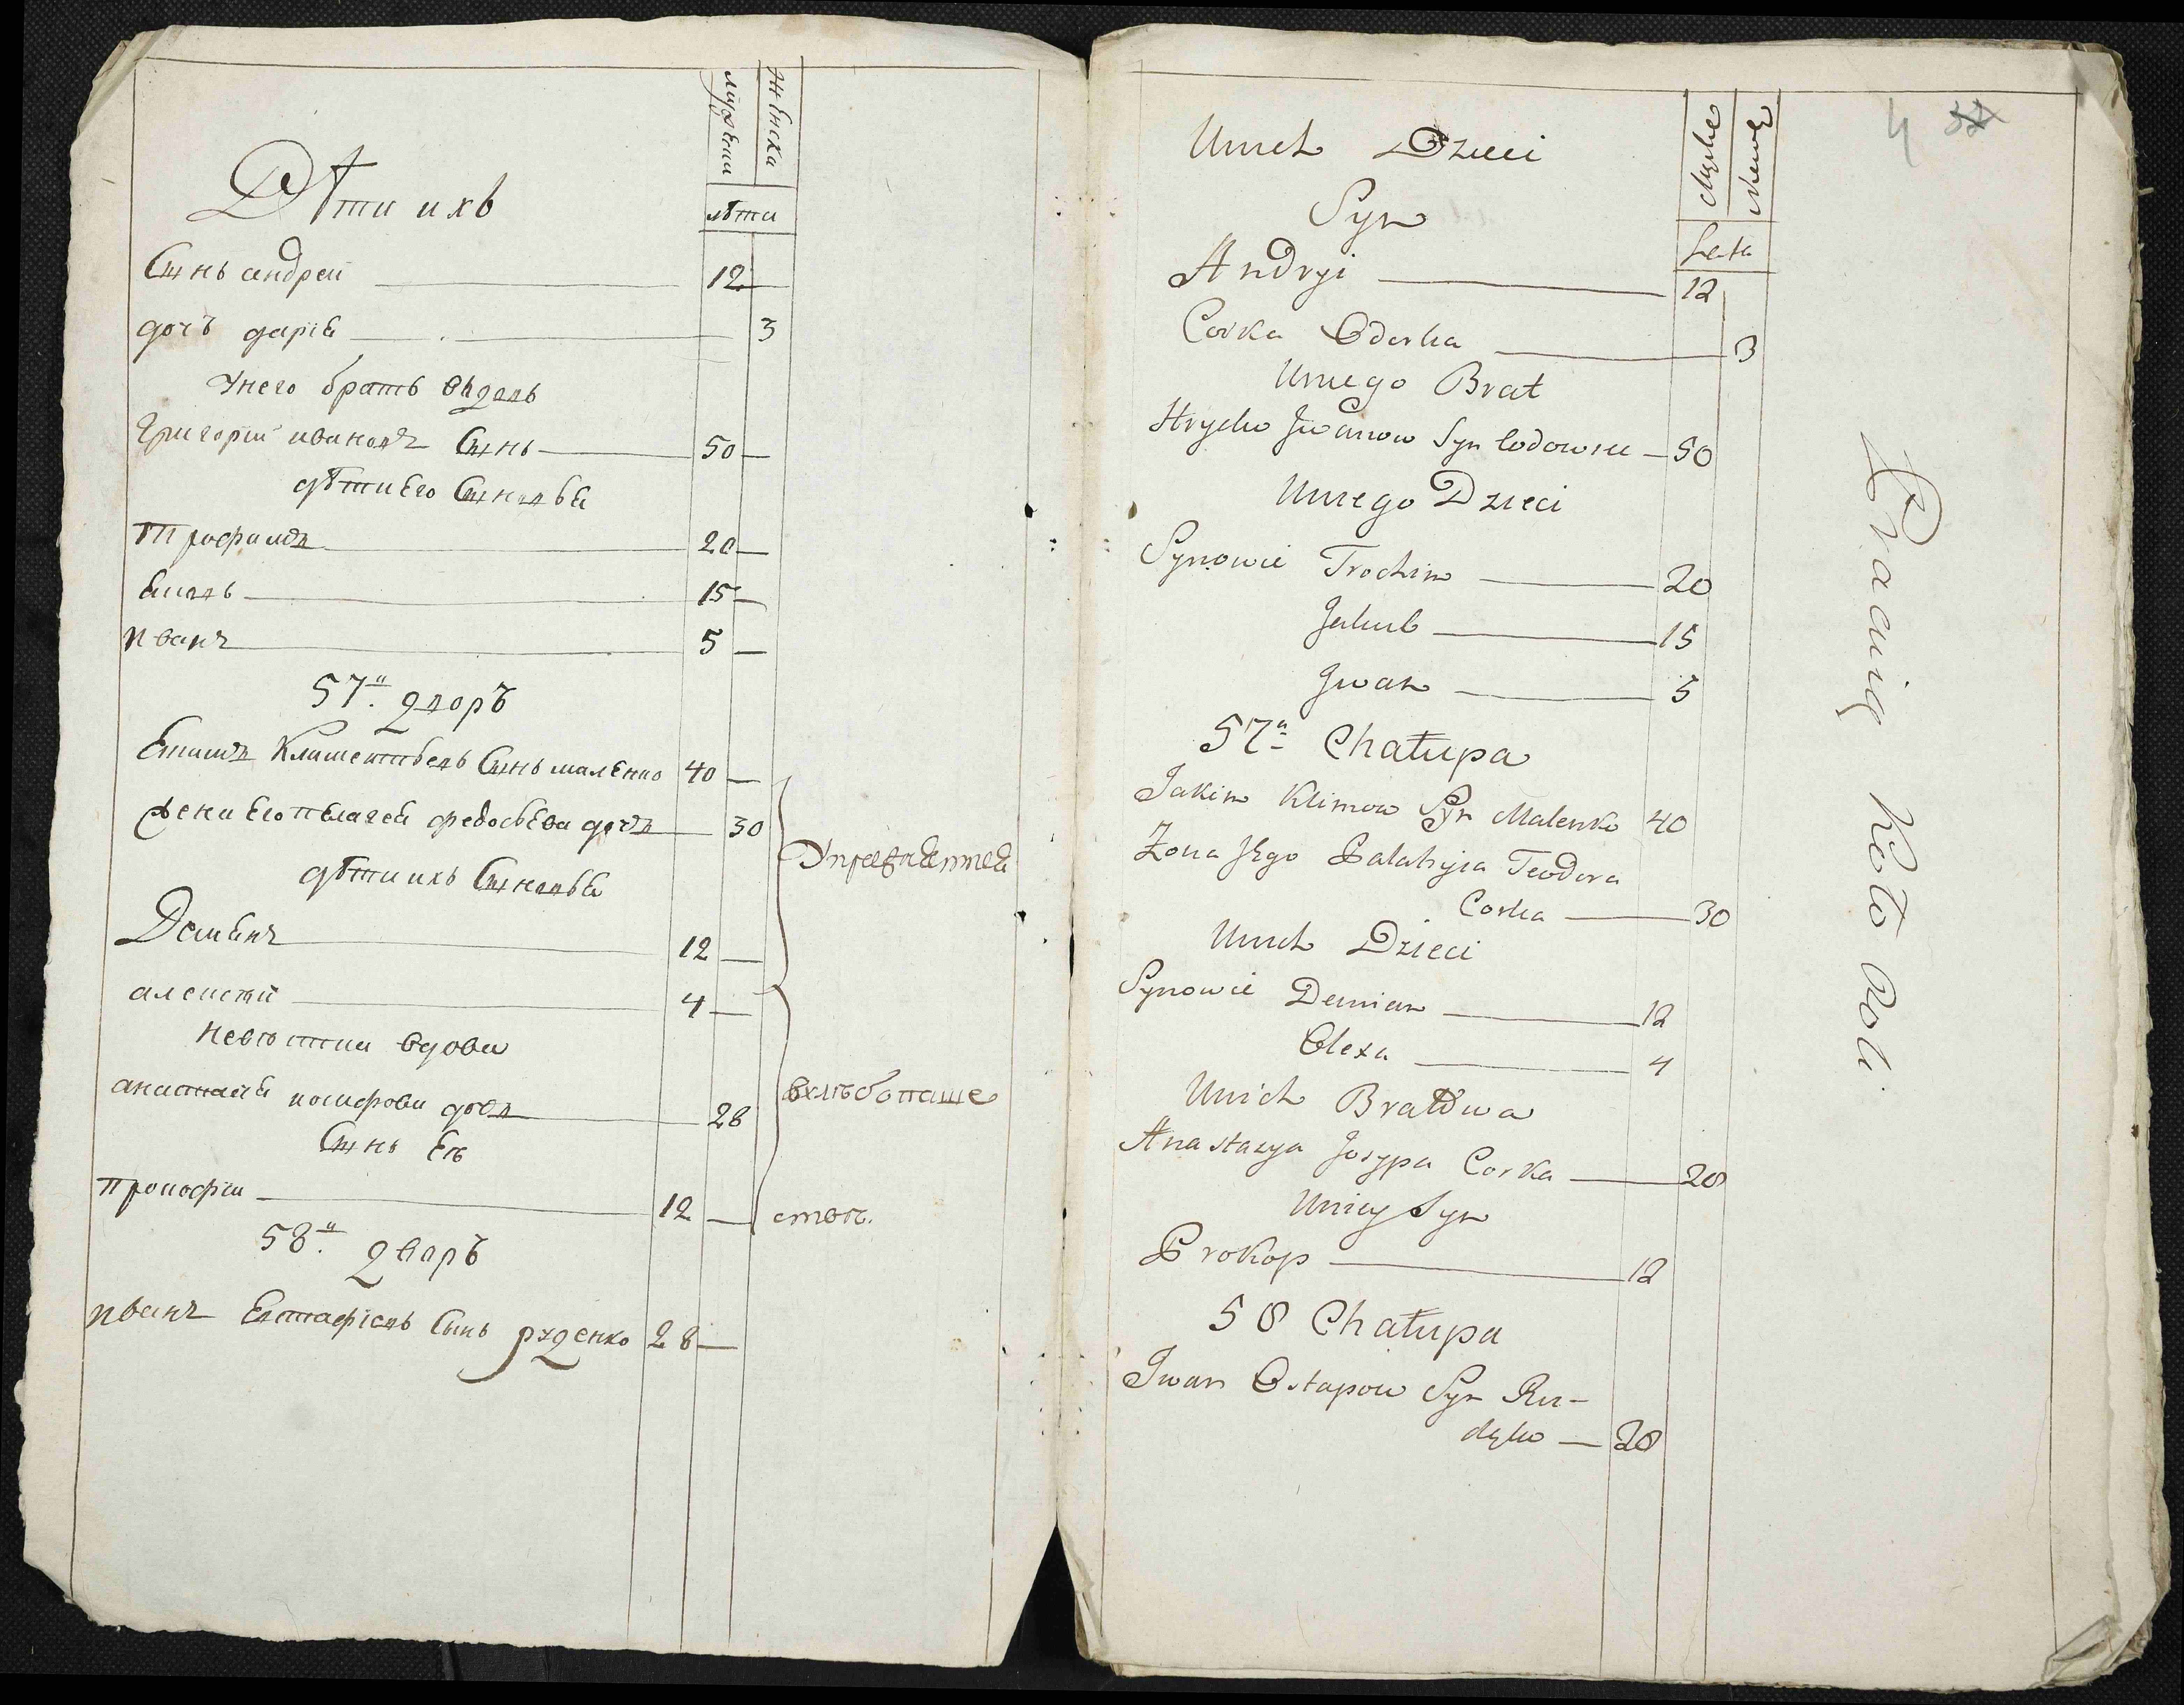 мужеска
женска
лѣта
Дѣти ихъ
Сынъ андрей 12
дочъ дарія 3
унего братъ вдовъ
Григорий ивановъ Сынъ 50
дѣти Его Сыновья
Трофимъ 20
Яковъ 15
иванъ 5
57й дворъ
Екимъ Климентьевъ Сынъ маленко 40
жена Его пелагея федосьева дочъ 30
дѣти ихъ Сыновья
Демьянъ 12
алексѣй 4
невѣстка вдова
анастасія иосифова дочъ 28
Сынъ Ея
прокофій 12
58й дворъ
иванъ Евстафіевъ Сынъ руденко 28
Упражняется
вхлѣбопаше
ствѣ.
Męskie
Niewie
Lata
4
Unich Dzieci
Syn
Andryi 12
Corka Odarka 3
Uniego Brat
Hrycko Jwanow Syn Wdowiec 50
Uniego Dzieci
Synowie Trochim 20
Jakub 15
Jwan 5
57a Chałupa
Jakim Klimow Syn Malenko 40
Zona Jego Palahyia Teodora
Corka 30
Unich Dzieci
Synowie Demian 12
Olexa 4
Unich Bratowa
Anastazya Jozypa Corka 28
Uniey Syn
Prokop 12
58 Chałupa
Jwan Ostapow Syn Ru-
dęko 28
Pracuią Koło Roli